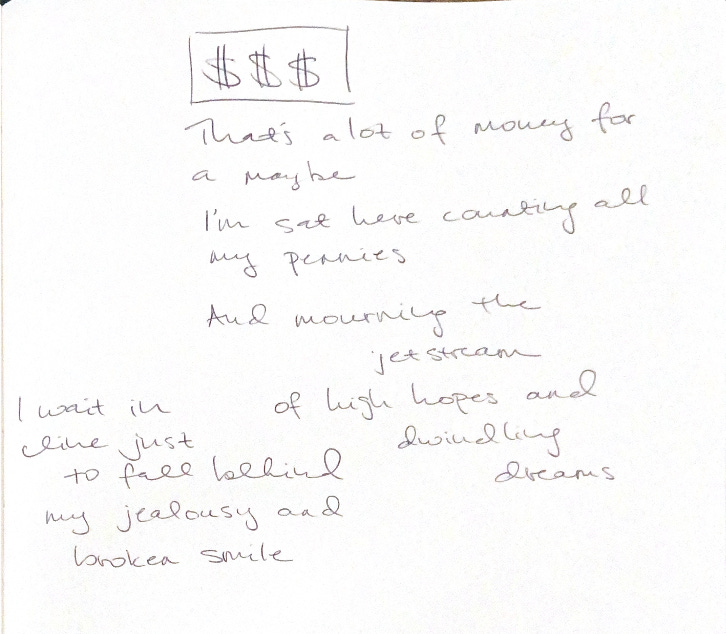 $$$
That's a lot of money for
a maybe
I'm sat here counting all
my pennies
And mourning the
jetstream
of high hopes and
dwindling
dreams
I wait in
line just
to fall behind
my jealousy and
broken smile